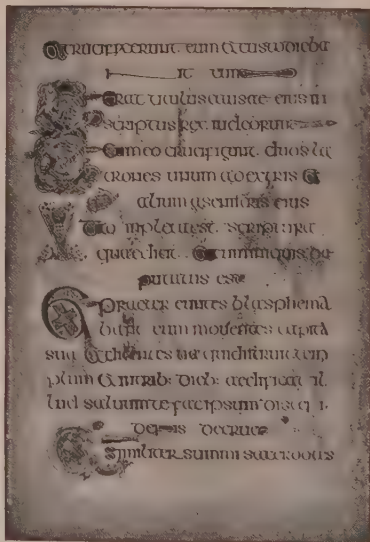 crucifixerunt eum & custodieba
nt eum
Erat titulus causae eius in
scriptus rex iudeorum
& cum eo crucifigunt duos la
trones unum a dextris &
alium a sinistris eius
impleta est scriptura
quae dicit & cum iniquis de
putatus est
Praetereuntes blasphema
bant eum mouentes capita
sua & dicentes
plum & in trib: dieb: aedificat il
lud saluum te fac ipsum discen
dens de cruce
Similiter summi sacerdotes